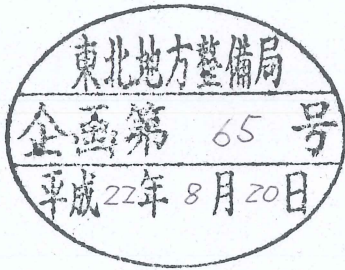 東北地方整備局
企画第 65 号
平成22年 8月20日